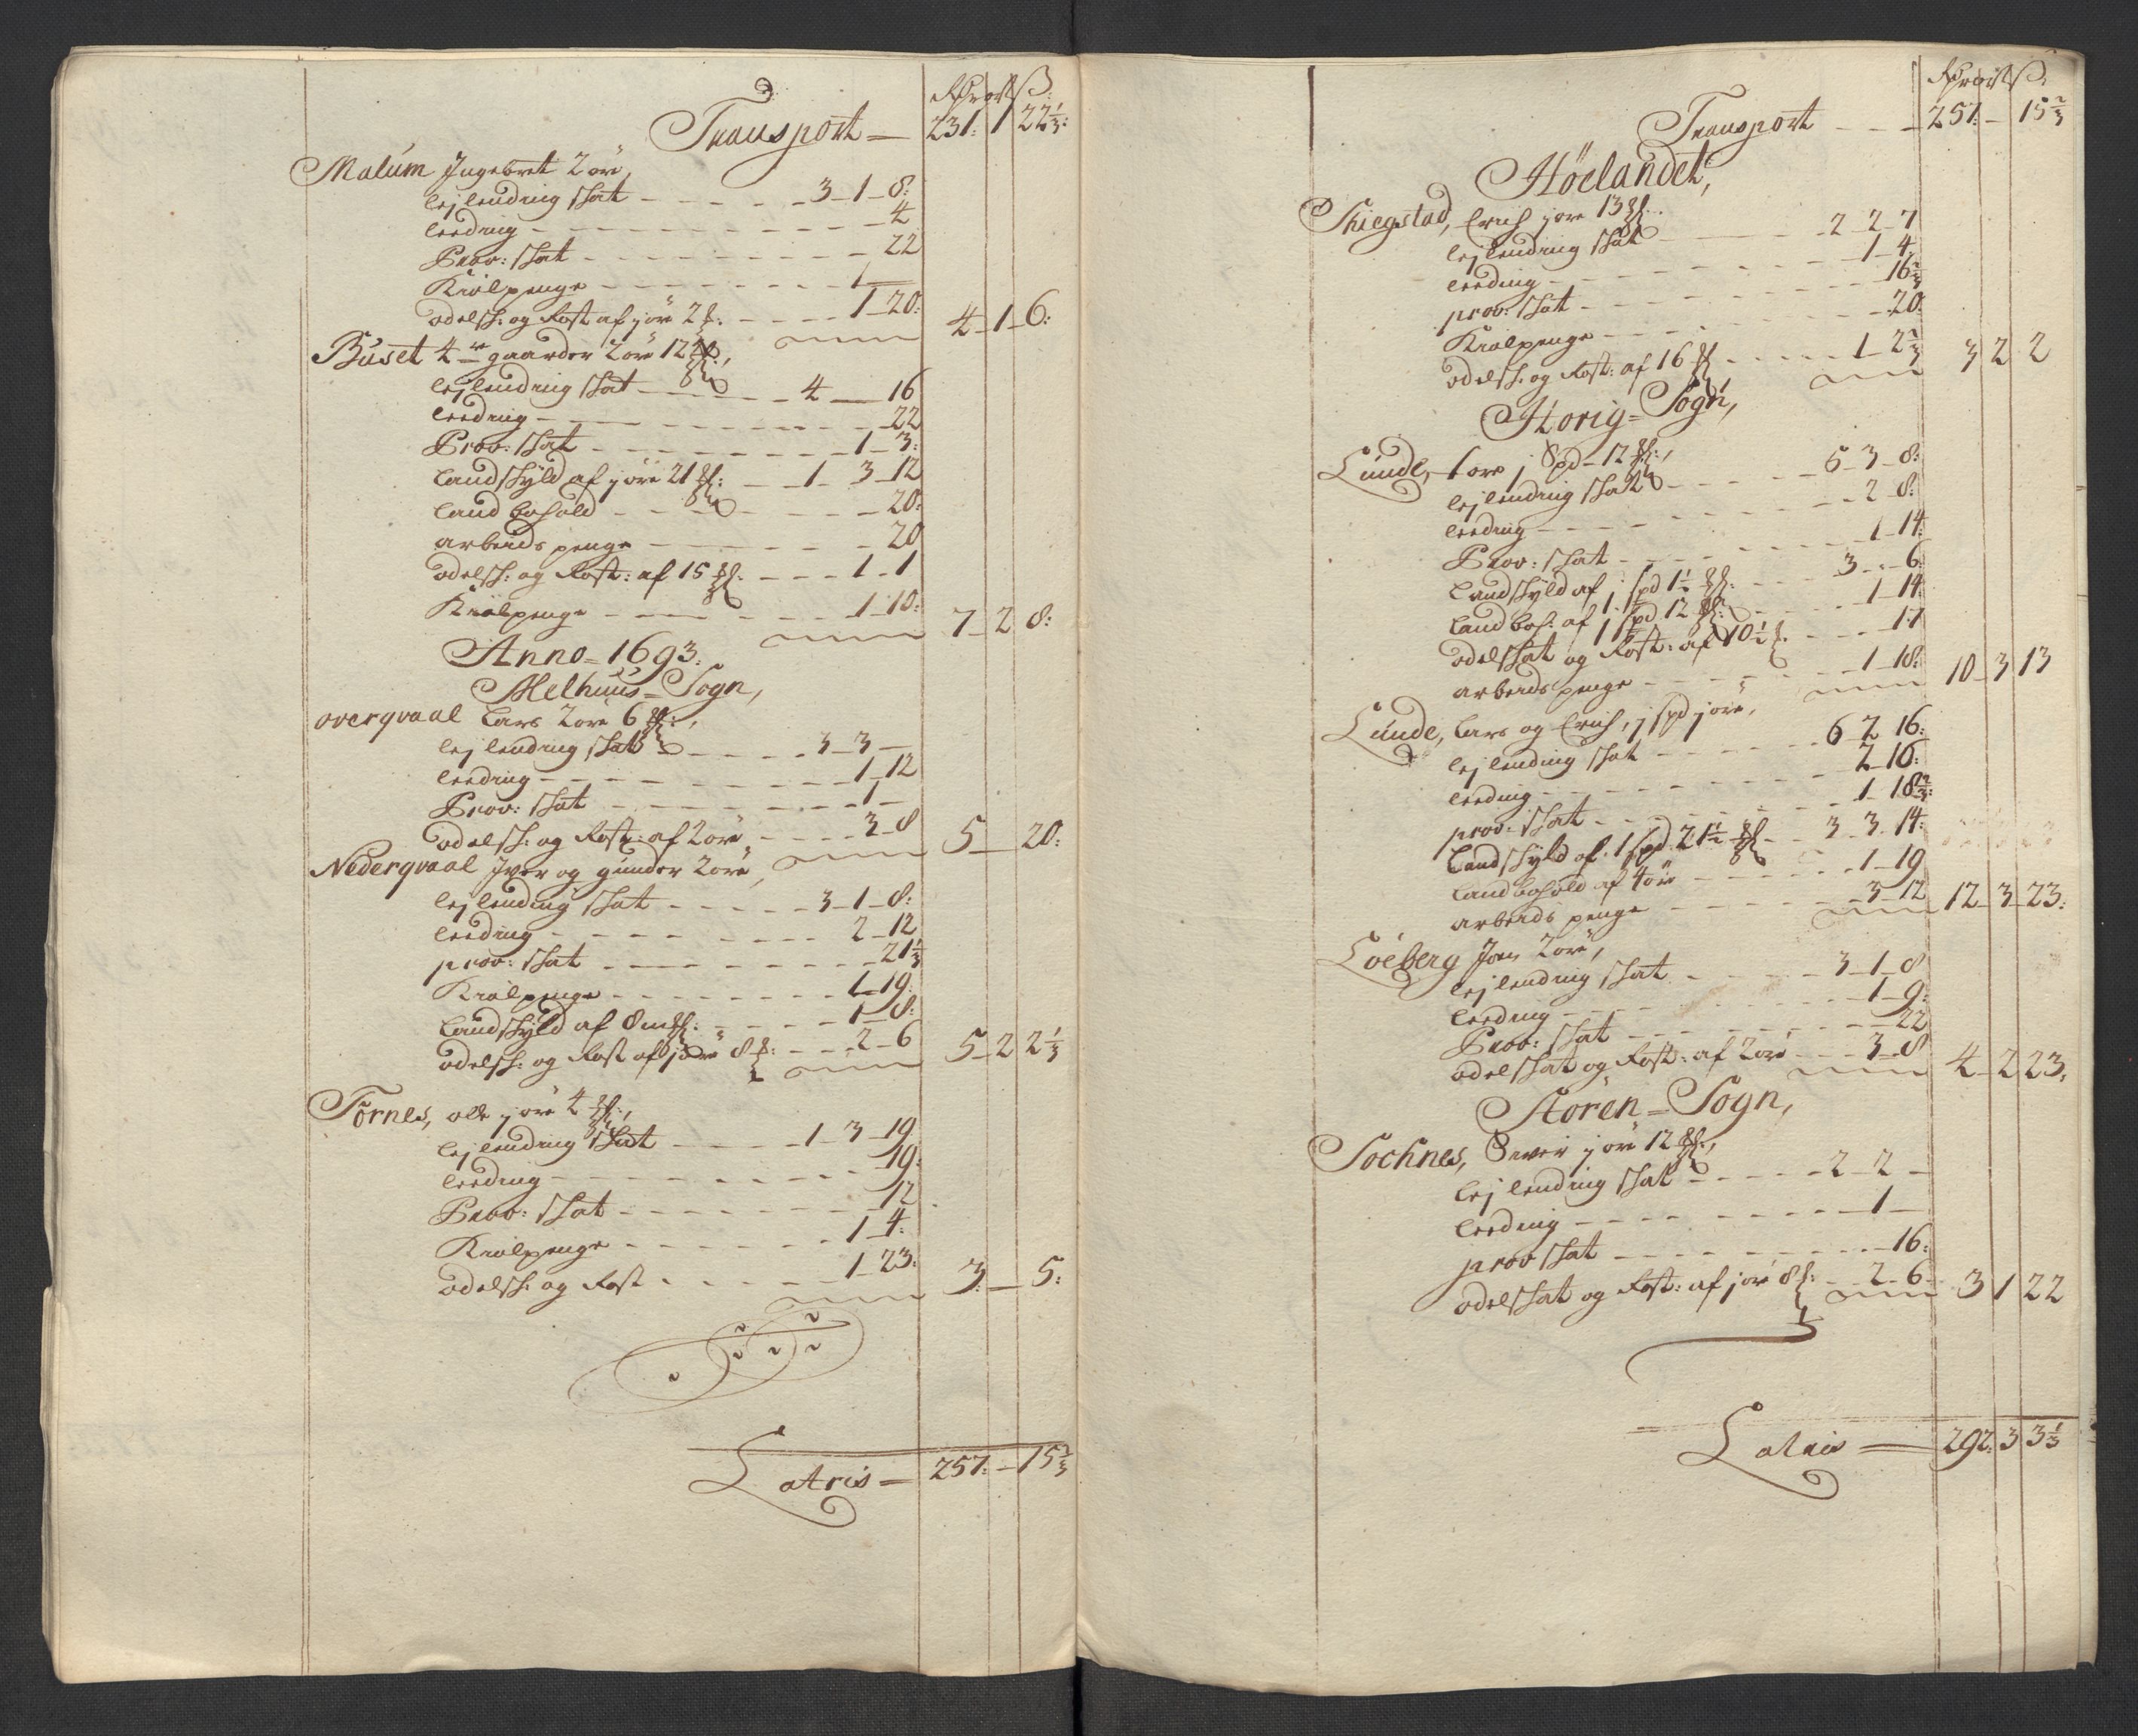 Rdr ort ß
Transport — 231: 1 22 1/3:
Malum Ingebret 2 øre,
lejlending skat — 3 — 1 — 8:
leeding — 4
Prov: skat — 22
Kiølpenge — 1 —
odelsk: og Rost af j øre 2 — 1 — 20: 4 — 1 — 6:
Buset 4re gaarder 2 øre 12,
lejlending skat — 4 — 16
leeding — 22
Prov: skat — 1 — 3:
Landskyld af j øre 21: — 1 — 3 — 12
Land bohold — 20:
arbeids penge — 20
odelsk: og Rost: af 15 — 1 — 1
Kiølpenge — 1 — 10: 7 — 2 8:
Anno = 1693.
Melhuus = Sogn,
overqvaal Lars 2 øre 6,
lejlending skat — 3 — 3 —
leeding — 1 — 12
Prov: skat — 1 —
odelsk: og Rost: af 2 øre — 3 — 8 5 — 20:
Nederqvaal Iver og gunder 2 øre,
lejlending skat — 3 — 1 — 8:
leeding — 2 — 12
prov: skat — 21 1/3
Kiølpenge — 1 — 19:
Landskyld af 8 — 1 — 8:
odelsk: og Rost af j øre 8: — 2 — 6 5 — 2 2 1/3
Tornes, olle j øre 4,
lejlending skat — 1 — 3 — 19
leeding — 19:
Prov: skat — 12
Kiølpenge — 1 — 4:
odelsk: og Rost — 1 — 23: 3: — 5:
Latris — 257: — 15 2/3
Rdr ort ß
Transport — 257: — 15 2/3
Høelandet,
Skiegstad, Erich j øre 13
lejlending skat — 2 — 2 — 7
leeding — 1 — 4
prov: skat — 16 2/3
Kiølpenge — 20:
odelsk: og Rost: af 16 — 1 — 2 2/3 3 2 2
Horig = Sogn,
Lunde, Tore j Spd — 12,
lejlending skat — 5 — 3 — 8:
leeding — 2 — 8:
Prov: skat — 1 — 14:
Landskyld af j spd 1 1/2 — 3 — 6:
Land boh: af 1 spd 12 — 1 — 14:
odelskat og Rost: af 10 1/2 — 17
arbeids penge — 1 — 18: 10 — 3 13
Lunde, Lars og Erich, j spd j øre,
lejlending skat — 6 2 16:
leeding — 2 — 16:
prov: skat — 1 — 18 2/3:
Landskyld af 1 spd 21 1/2 — 3 — 3 14:
Land bohold af 4 øre — 1 — 19
arbeids penge — 3 — 12 12 — 3 — 23:
Løeberg Jon 2 øre,
lejlending skat — 3 — 1 — 8
leeding — 1 — 9:
Prov: skat — 22
odelskat og Rost: af 2 øre — 3 — 8 4 — 2 23,
Støren = Sogn,
Sochnes, Sivver j øre 12,
lejlending skat — 2 — 2 —
leeding — 1 —
prov skat — 16:
odelskat og Rost: af j øre 8: — 2 — 6 3 1 22
Latris — 292: 3 3 1/3